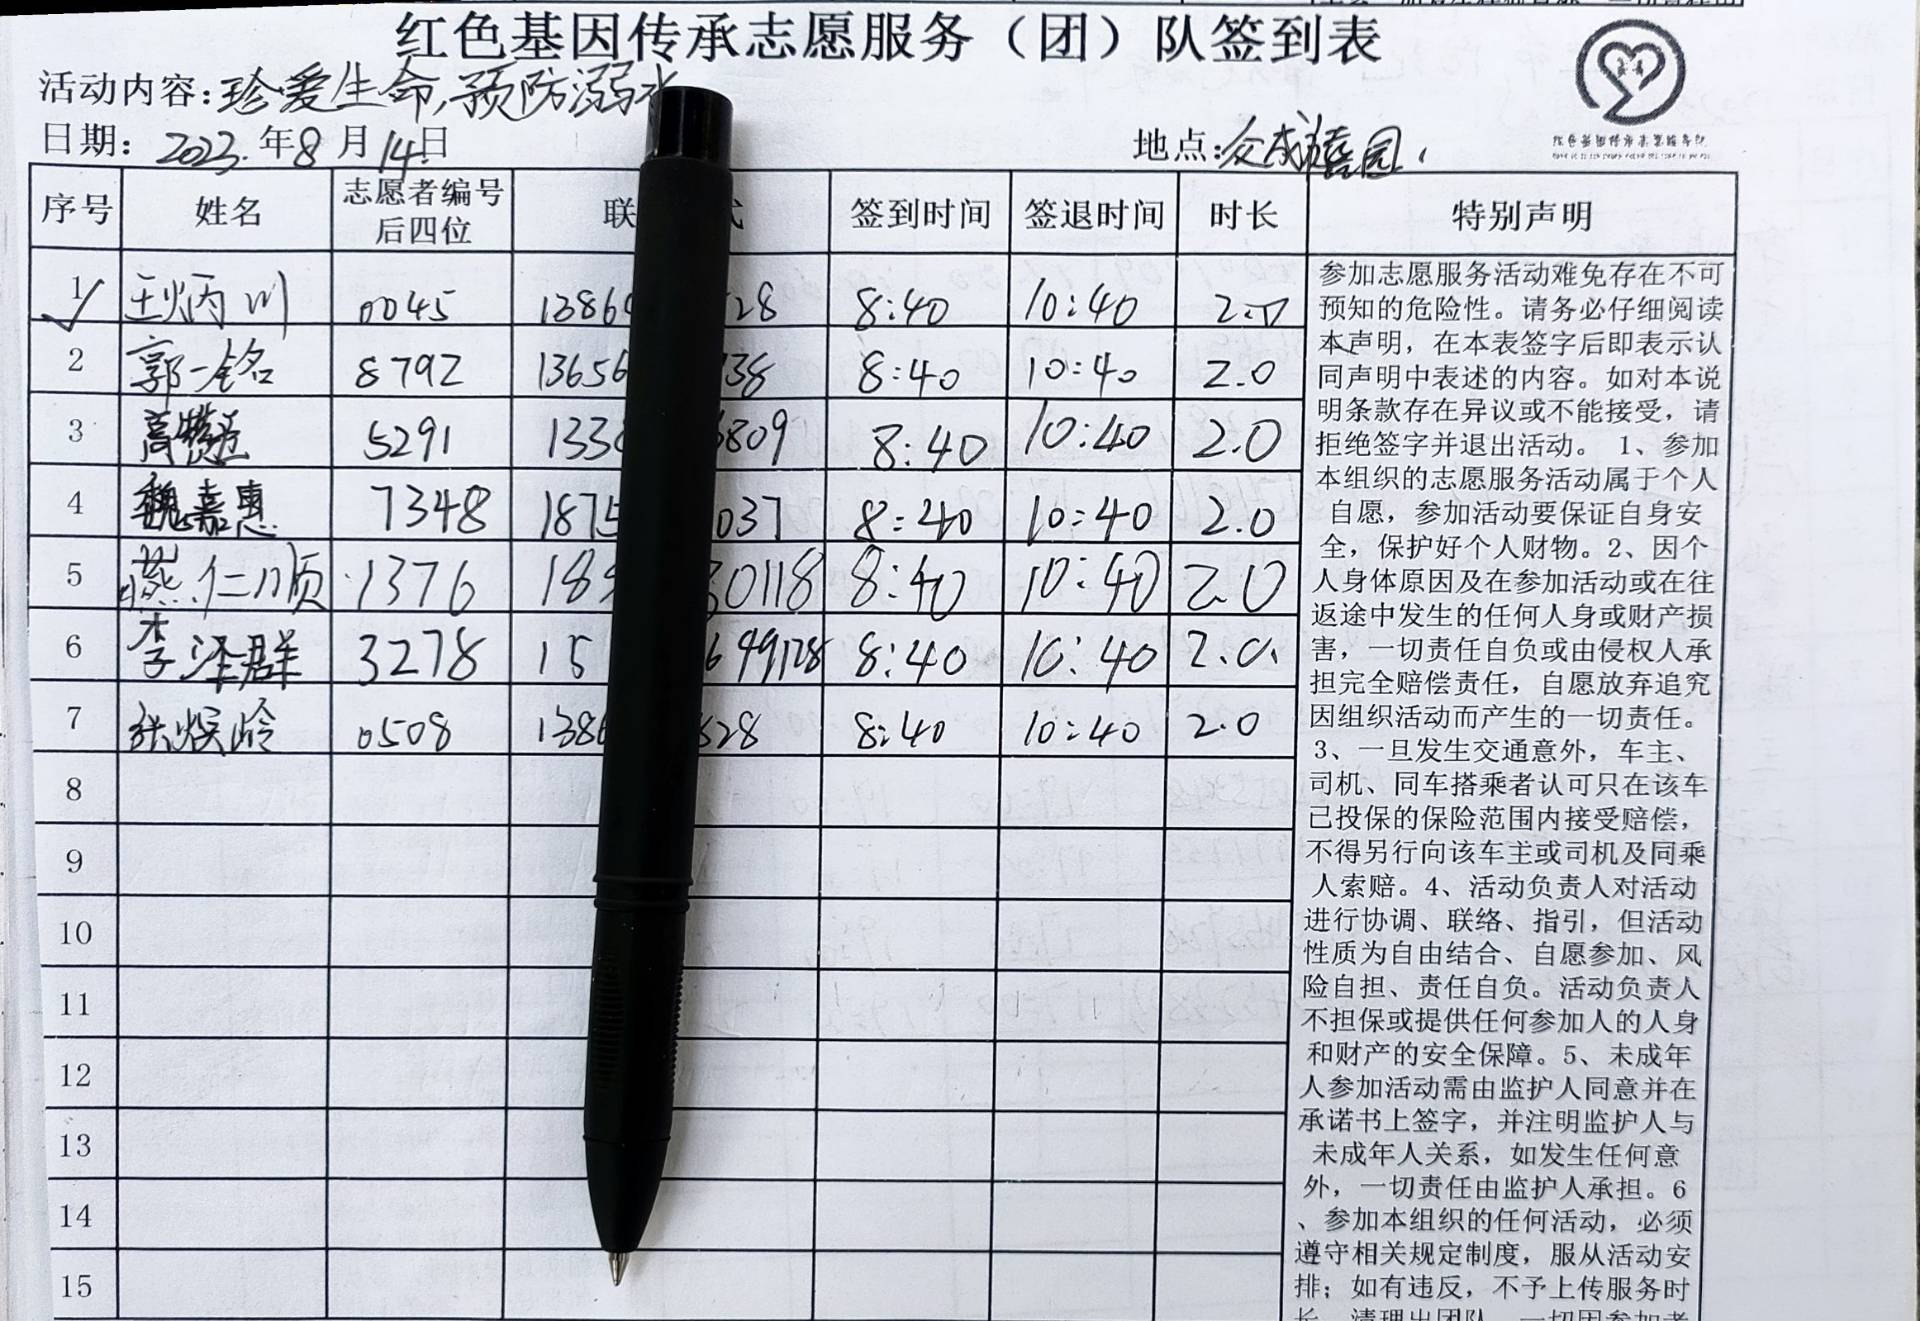 红色基因传承志愿服务（团）队签到表
活动内容：珍爱生命，预防溺水
日期：2023年8月14日 地点：众成禧园
序号 姓名 志愿者编号后四位 联 式 签到时间 签退时间 时长 特别声明
1 王炳川 0045 1386 28 8:40 10:40 2.0
2 郭一铭 8792 13656 38 8:40 10:40 2.0
3 高 5291 133 6809 8:40 10:40 2.0
4 魏嘉惠 7348 1875 037 8:40 10:40 2.0
5 燕仁顺 1376 18 30118 8:40 10:40 2.0
6 李泽群 3278 15 649128 8:40 10:40 2.0
7 张 0508 1386 828 8:40 10:40 2.0
8
9
10
11
12
13
14
15
参加志愿服务活动难免存在不可
预知的危险性。请务必仔细阅读
本声明，在本表签字后即表示认
同声明中表述的内容。如对本说
明条款存在异议或不能接受，请
拒绝签字并退出活动。 1、参加
本组织的志愿服务活动属于个人
自愿，参加活动要保证自身安
全，保护好个人财物。2、因个
人身体原因及在参加活动或在往
返途中发生的任何人身或财产损
害，一切责任自负或由侵权人承
担完全赔偿责任，自愿放弃追究
因组织活动而产生的一切责任。
3、一旦发生交通意外，车主、
司机、同车搭乘者认可只在该车
已投保的保险范围内接受赔偿，
不得另行向该车主或司机及同乘
人索赔。4、活动负责人对活动
进行协调、联络、指引，但活动
性质为自由结合、自愿参加、风
险自担、责任自负。活动负责人
不担保或提供任何参加人的人身
和财产的安全保障。5、未成年
人参加活动需由监护人同意并在
承诺书上签字，并注明监护人与
未成年人关系，如发生任何意
外，一切责任由监护人承担。6
、参加本组织的任何活动，必须
遵守相关规定制度，服从活动安
排；如有违反，不予上传服务时
长，清理出团队，一切因参加者